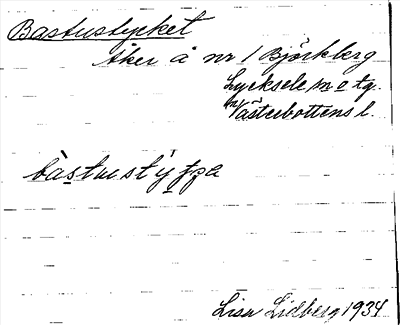 Bastustycket
Åker å nr 1 Björkberg
Lycksele sn o tg.
Västerbottens l.
Lisa Lidberg 1934